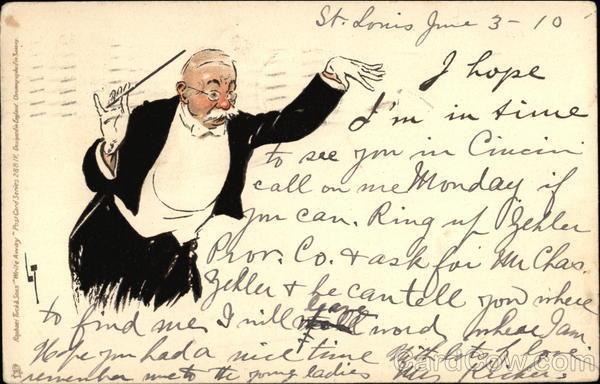 St. Louis June 3-10
I hope
I'm in time
to see you in Cincin
call on me Monday if
you can. Ring up Zehler
Prov. Co. & ask for Mr Chas.
Zehler & he can tell you where
to find me. I will leave word where I am
Hope you had a nice time with lots of
remember me to the young ladies
Raphael Tuck & Sons' "Write Away" Post Card Series 288 IV. Designed in England. Chromographed in Saxony.
CardCow.com